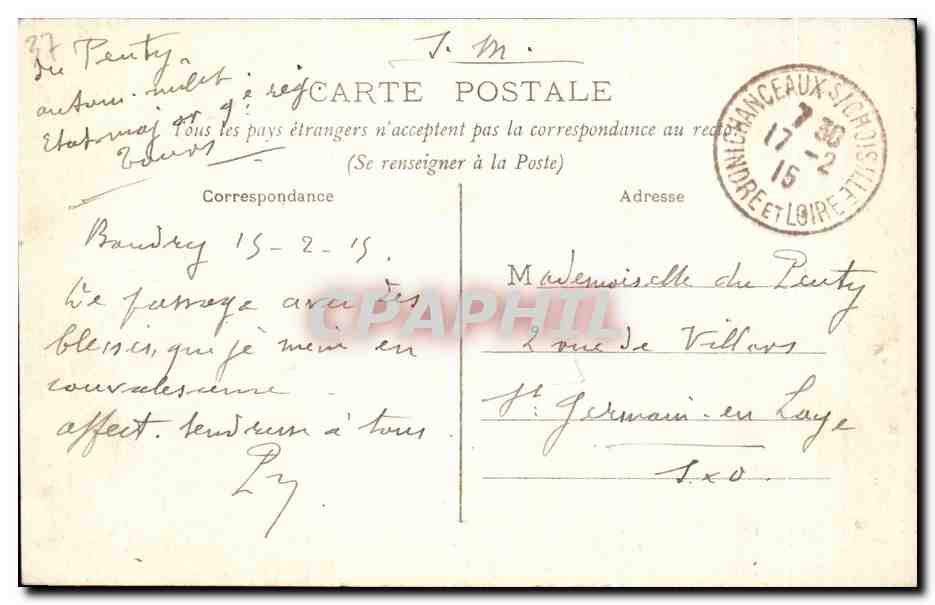 37
du Penty
autom. milit
Etat major 9e rég
Tours
S. M.
CARTE POSTALE
Tous les pays étrangers n'acceptent pas la correspondance au recto.
(Se renseigner à la Poste)
Correspondance
Adresse
CHANCEAUX-S/CHOISILLE
7 30
17 -2
15
INDRE ET LOIRE
Baudry 15-2-15.
De passage avec des
blessés, que je mène en
convalescence
affect. tendresse à tous
Py
Mademoiselle du Penty
2 rue de Villars
St. Germain-en Laye
S. x O.
CPAPHIL